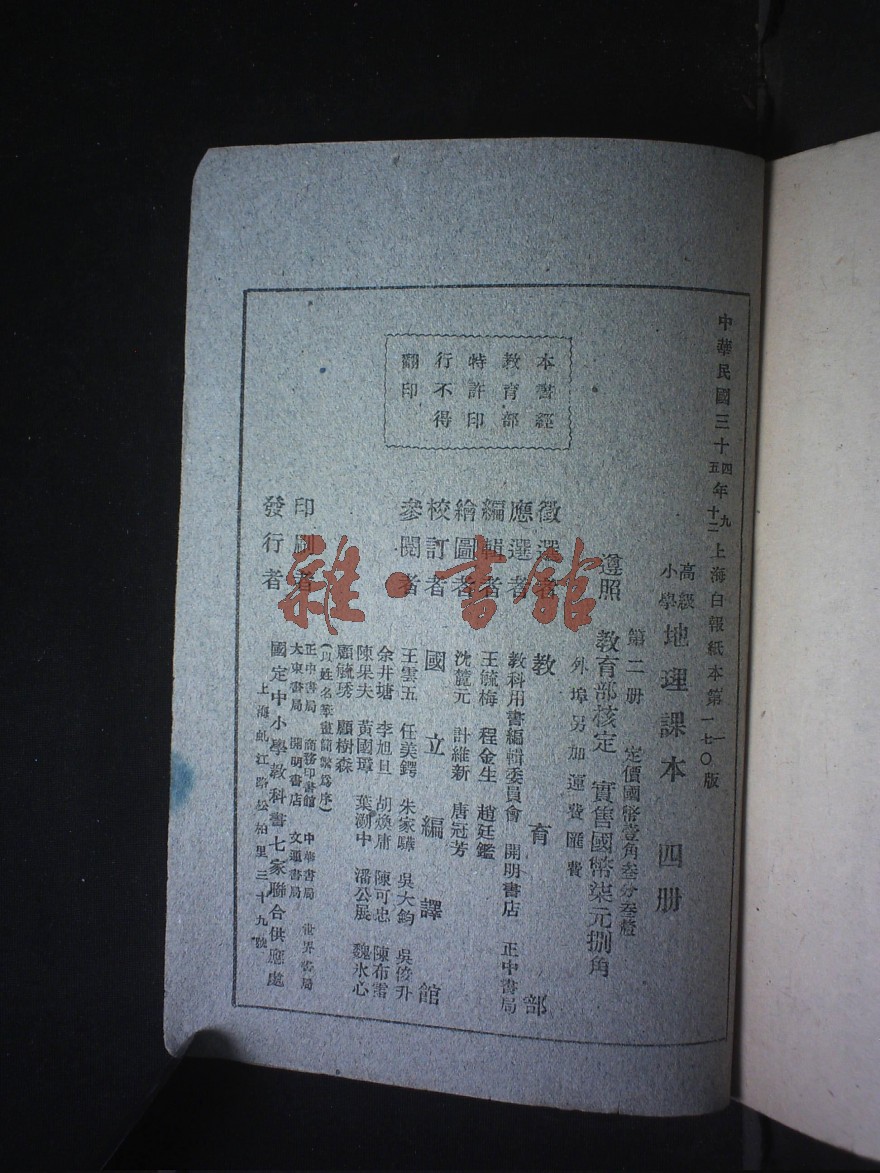 中華民國三十四年九上海白報紙本第一版
五 十二 一七〇
高級小學地理課本 四册
第二册 定價國幣壹角叁分叁釐
遵照教育部核定 實售國幣柒元捌角
外埠另加運費匯費
徵選者 教育部
應選者 教科用書編輯委員會 開明書店 正中書局
編輯者 王毓梅 程金生 趙廷鑑
繪圖者 沈麓元 計維新 唐冠芳
校訂者 國立編譯館
參閱者 王雲五 任美鍔 朱家驊 吳大鈞 吳俊升
余井塘 李旭旦 胡煥庸 陳可忠 陳布雷
陳果夫 黃國璋 葉溯中 潘公展 魏冰心
顧毓琇 顧樹森
(以姓名筆畫簡繁爲序)
印刷者 正中書局 商務印書館 中華書局 世界書局
大東書局 開明書店 文通書局
發行者 國定中小學教科書七家聯合供應處
上海虬江路松柏里三十九號
本書經
教育部
特許印
行不得
翻印
雜·書館